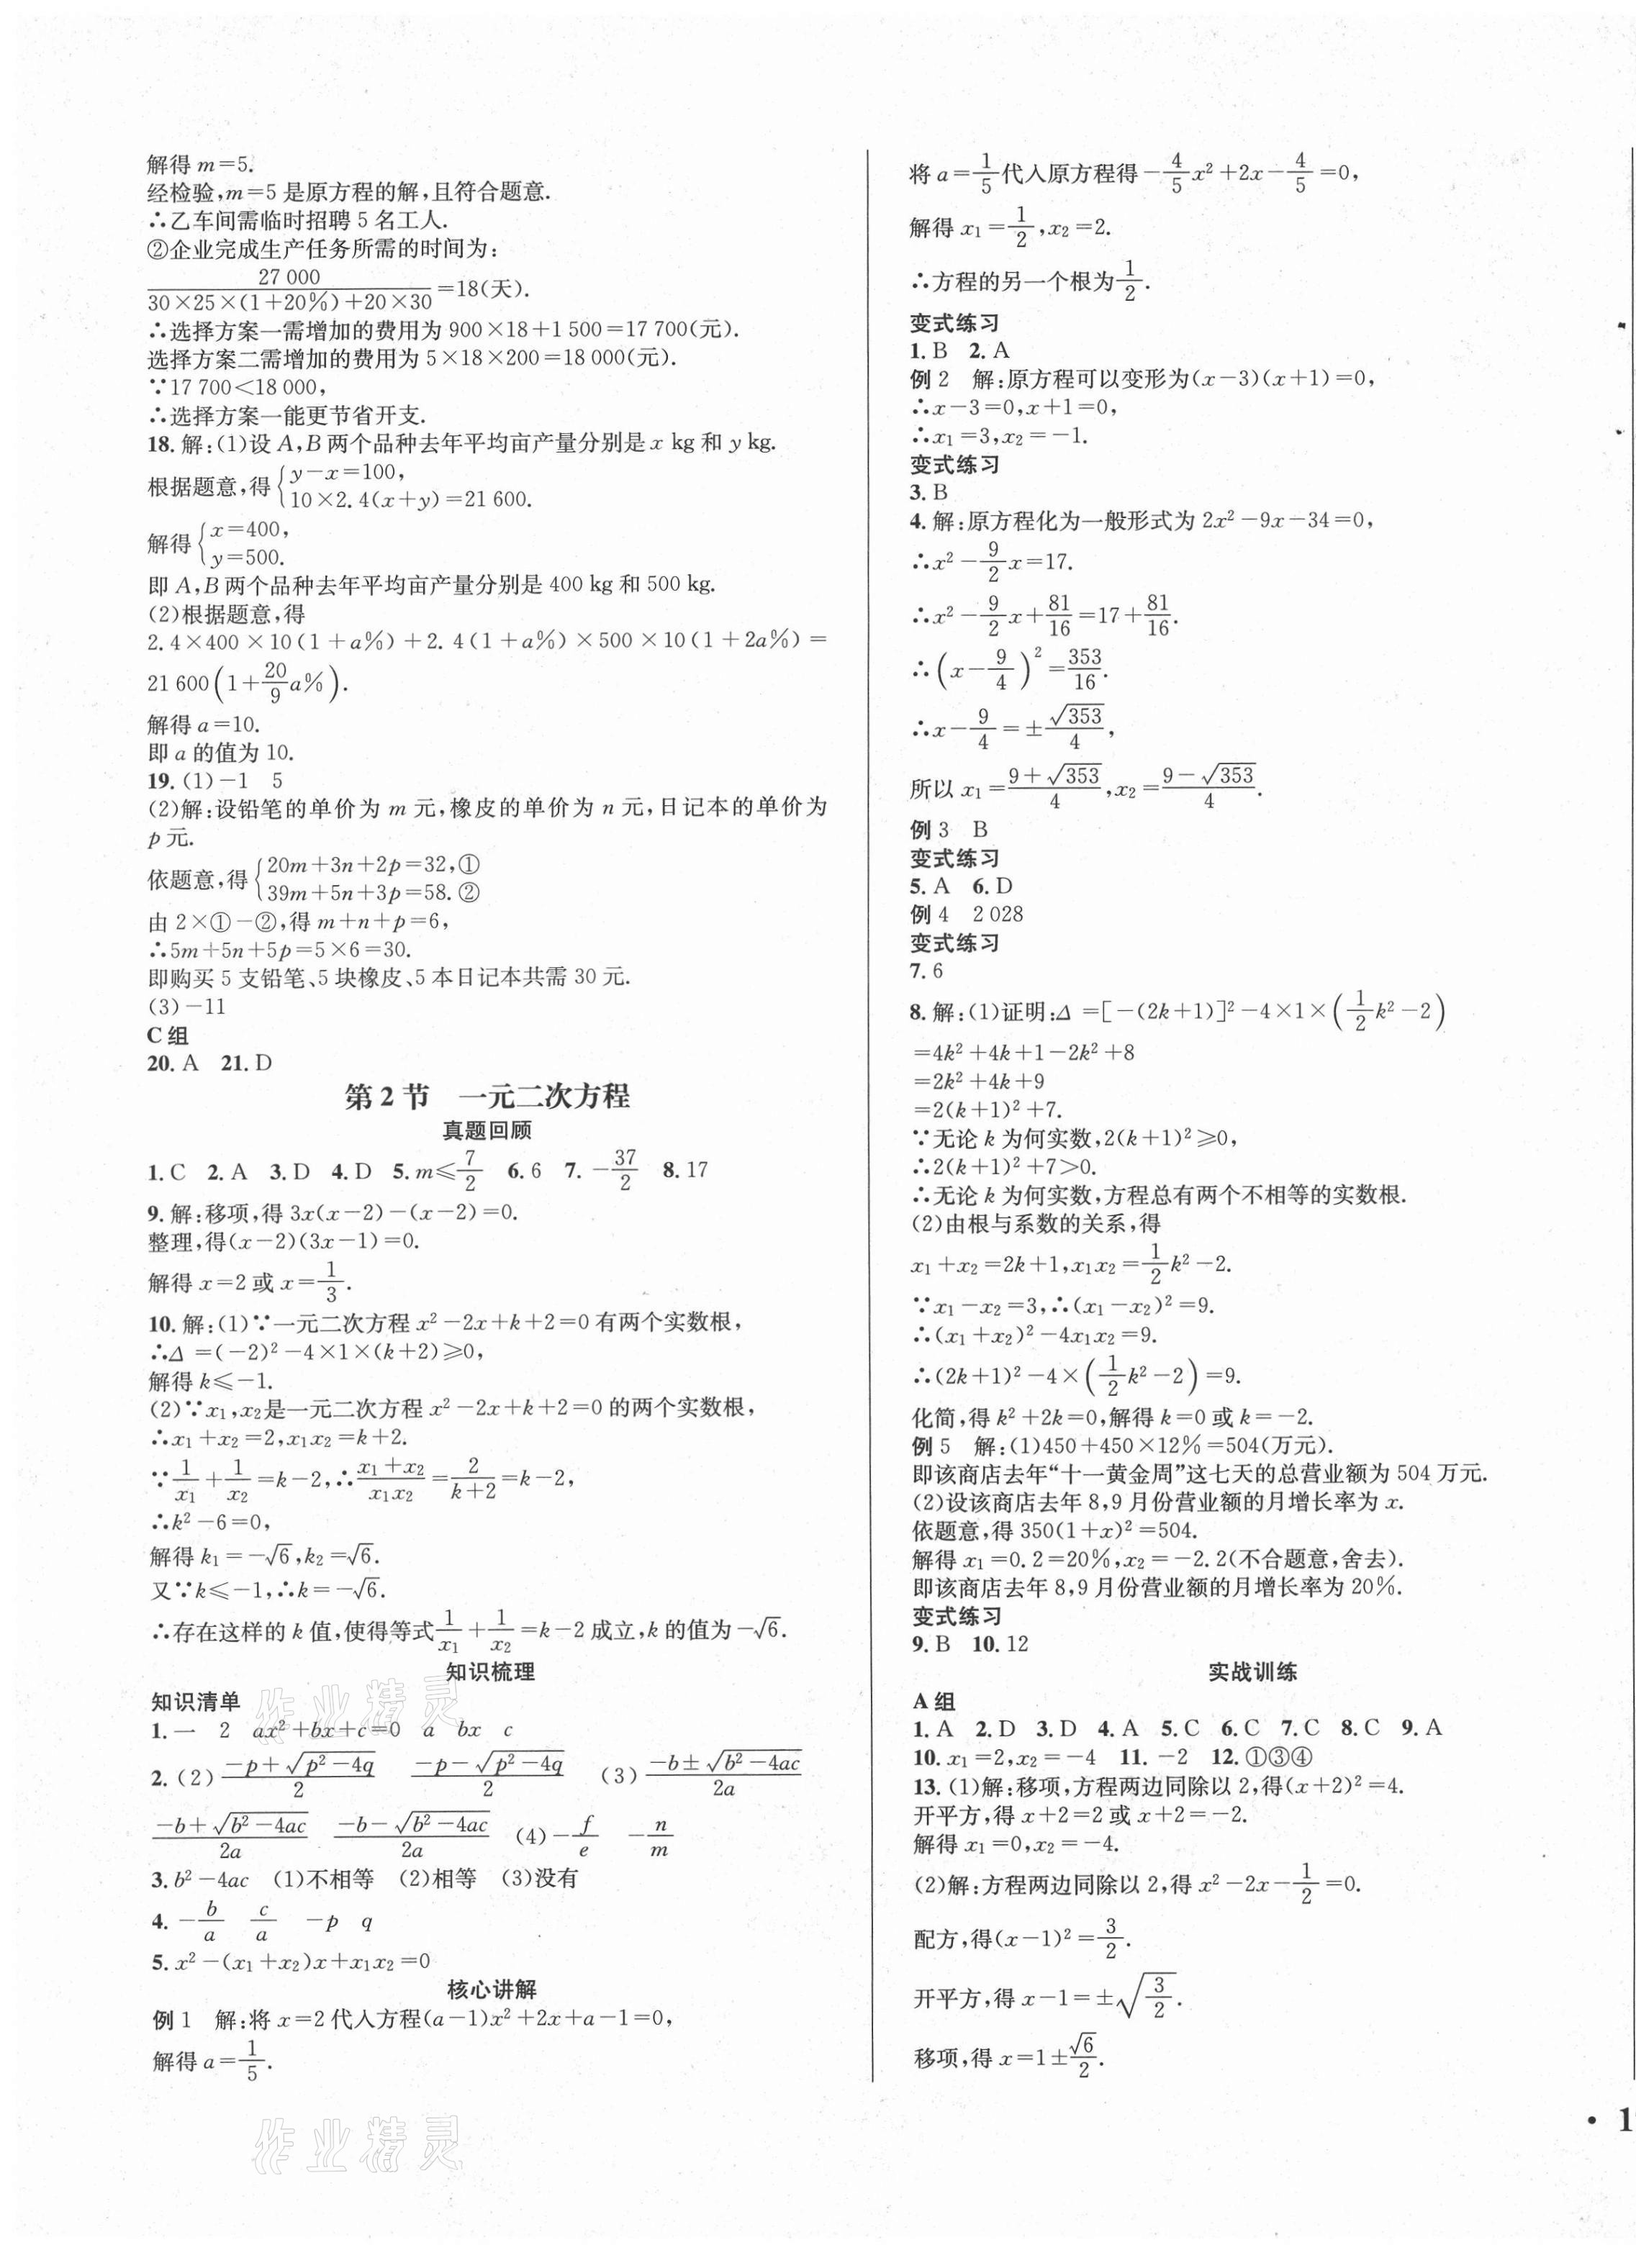 解得 m=5.
经检验,m=5 是原方程的解,且符合题意.
∴乙车间需临时招聘 5 名工人.
②企业完成生产任务所需的时间为:
27 000/(30×25×(1+20%)+20×30)=18(天).
∴选择方案一需增加的费用为 900×18+1 500=17 700(元).
选择方案二需增加的费用为 5×18×200=18 000(元).
∵17 700<18 000,
∴选择方案一能更节省开支.
18. 解:(1)设 A,B 两个品种去年平均亩产量分别是 x kg 和 y kg.
根据题意,得{y−x=100, 10×2.4(x+y)=21 600.
解得{x=400, y=500.
即 A,B 两个品种去年平均亩产量分别是 400 kg 和 500 kg.
(2)根据题意,得
2.4×400×10(1+a%)+2.4(1+a%)×500×10(1+2a%)=
21 600(1+20/9 a%).
解得 a=10.
即 a 的值为 10.
19. (1)−1 5
(2)解:设铅笔的单价为 m 元,橡皮的单价为 n 元,日记本的单价为
p 元.
依题意,得{20m+3n+2p=32,① 39m+5n+3p=58.②
由 2×①−②,得 m+n+p=6,
∴5m+5n+5p=5×6=30.
即购买 5 支铅笔、5 块橡皮、5 本日记本共需 30 元.
(3)−11
C 组
20. A 21. D
第 2 节 一元二次方程
真题回顾
1. C 2. A 3. D 4. D 5. m≤7/2 6. 6 7. −37/2 8. 17
9. 解:移项,得 3x(x−2)−(x−2)=0.
整理,得(x−2)(3x−1)=0.
解得 x=2 或 x=1/3.
10. 解:(1)∵一元二次方程 x²−2x+k+2=0 有两个实数根,
∴Δ=(−2)²−4×1×(k+2)≥0,
解得 k≤−1.
(2)∵x₁,x₂是一元二次方程 x²−2x+k+2=0 的两个实数根,
∴x₁+x₂=2,x₁x₂=k+2.
∵1/x₁+1/x₂=k−2,∴(x₁+x₂)/(x₁x₂)=2/(k+2)=k−2,
∴k²−6=0,
解得 k₁=−√6,k₂=√6.
又∵k≤−1,∴k=−√6.
∴存在这样的 k 值,使得等式1/x₁+1/x₂=k−2 成立,k 的值为−√6.
知识梳理
知识清单
1. 一 2 ax²+bx+c=0 a bx c
2. (2)(−p+√(p²−4q))/2 (−p−√(p²−4q))/2 (3)(−b±√(b²−4ac))/2a
(−b+√(b²−4ac))/2a (−b−√(b²−4ac))/2a (4)−f/e −n/m
3. b²−4ac (1)不相等 (2)相等 (3)没有
4. −b/a c/a −p q
5. x²−(x₁+x₂)x+x₁x₂=0
核心讲解
例 1 解:将 x=2 代入方程(a−1)x²+2x+a−1=0,
解得 a=1/5.
将 a=1/5代入原方程得−4/5 x²+2x−4/5=0,
解得 x₁=1/2,x₂=2.
∴方程的另一个根为1/2.
变式练习
1. B 2. A
例 2 解:原方程可以变形为(x−3)(x+1)=0,
∴x−3=0,x+1=0,
∴x₁=3,x₂=−1.
变式练习
3. B
4. 解:原方程化为一般形式为 2x²−9x−34=0,
∴x²−9/2 x=17.
∴x²−9/2 x+81/16=17+81/16.
∴(x−9/4)²=353/16.
∴x−9/4=±√353/4,
所以 x₁=(9+√353)/4,x₂=(9−√353)/4.
例 3 B
变式练习
5. A 6. D
例 4 2 028
变式练习
7. 6
8. 解:(1)证明:Δ=[−(2k+1)]²−4×1×(1/2 k²−2)
=4k²+4k+1−2k²+8
=2k²+4k+9
=2(k+1)²+7.
∵无论 k 为何实数,2(k+1)²≥0,
∴2(k+1)²+7>0.
∴无论 k 为何实数,方程总有两个不相等的实数根.
(2)由根与系数的关系,得
x₁+x₂=2k+1,x₁x₂=1/2 k²−2.
∵x₁−x₂=3,∴(x₁−x₂)²=9.
∴(x₁+x₂)²−4x₁x₂=9.
∴(2k+1)²−4×(1/2 k²−2)=9.
化简,得 k²+2k=0,解得 k=0 或 k=−2.
例 5 解:(1)450+450×12%=504(万元).
即该商店去年“十一黄金周”这七天的总营业额为 504 万元.
(2)设该商店去年 8,9 月份营业额的月增长率为 x.
依题意,得 350(1+x)²=504.
解得 x₁=0.2=20%,x₂=−2.2(不合题意,舍去).
即该商店去年 8,9 月份营业额的月增长率为 20%.
变式练习
9. B 10. 12
实战训练
A 组
1. A 2. D 3. D 4. A 5. C 6. C 7. C 8. C 9. A
10. x₁=2,x₂=−4 11. −2 12. ①③④
13. (1)解:移项,方程两边同除以 2,得(x+2)²=4.
开平方,得 x+2=2 或 x+2=−2.
解得 x₁=0,x₂=−4.
(2)解:方程两边同除以 2,得 x²−2x−1/2=0.
配方,得(x−1)²=3/2.
开平方,得 x−1=±√(3/2).
移项,得 x=1±√6/2.
· 1
作业精灵
作业精灵